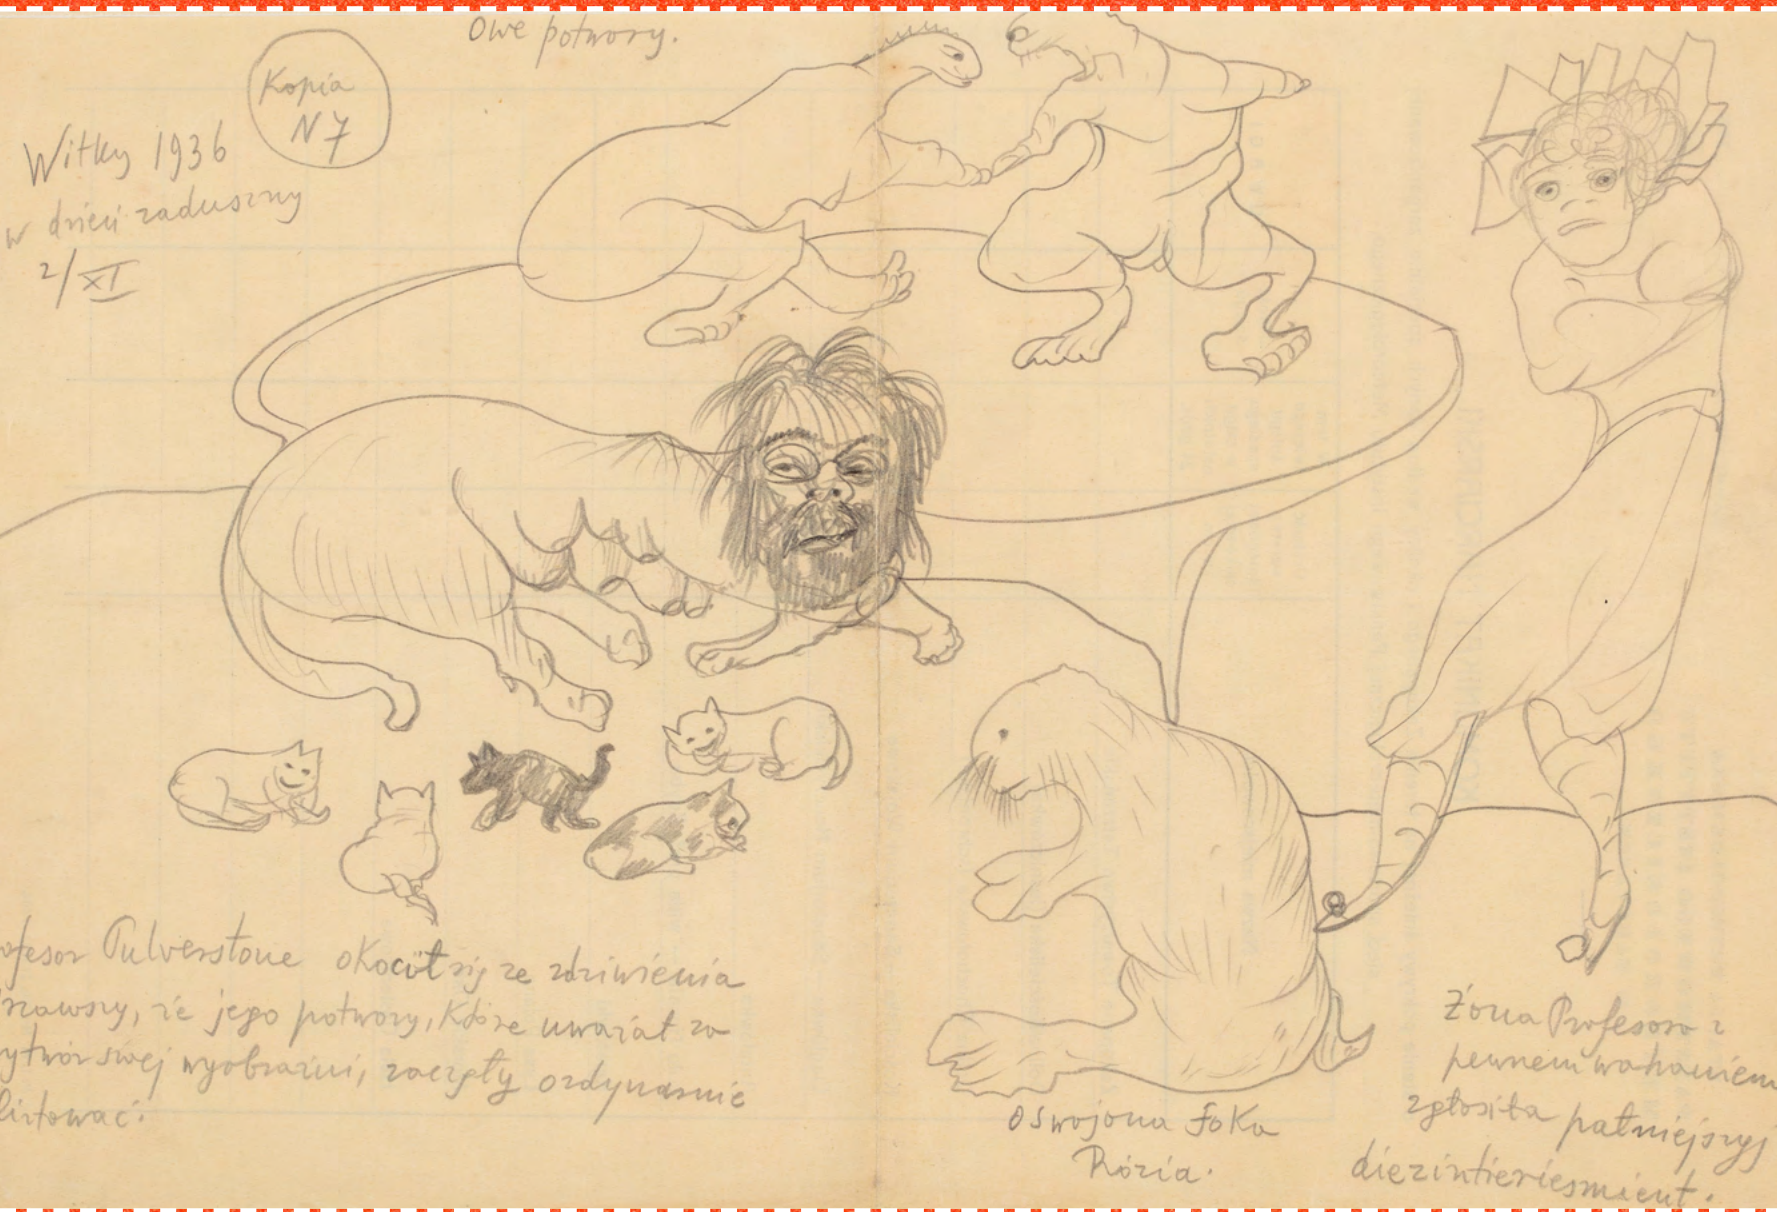 Owe potwory.
Kopia
N 7
Witkacy 1936
w dzień zaduszny
2/XI
ofesor Pulverstone okocił się ze zdziwienia
rzawszy, że jego potwory, które uważał za
ytwór swej wyobraźni, zaczęły ordynarnie
lirtować.
Oswojona foka
Rózia.
Żona Profesora z
pewnem wahaniem
zgłosiła pałniejszyj
diezintieriesmient.